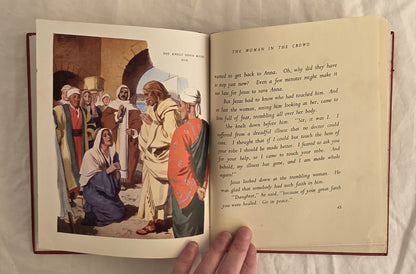 SHE KNELT DOWN BEFORE
HIM.
THE WOMAN IN THE CROWD
wanted to get back to Anna. Oh, why did they have
to stop just now? Even a few minutes might make it
too late for Jesus to save Anna.
But Jesus had to know who had touched Him. And
at last the woman, seeing him looking at her, came to
him full of fear, trembling all over her body.
She knelt down before him. "Sir, it was I. I
suffered from a dreadful illness that no doctor could
cure. I thought that if I could but touch the hem of
your robe I should be made better. I feared to ask you
for your help, so I came to touch your robe. And
behold, my illness has gone, and I am made whole
again!"
Jesus looked down at the trembling woman. He
was glad that somebody had such faith in him.
"Daughter," he said, "because of your great faith
you were healed. Go in peace."
45